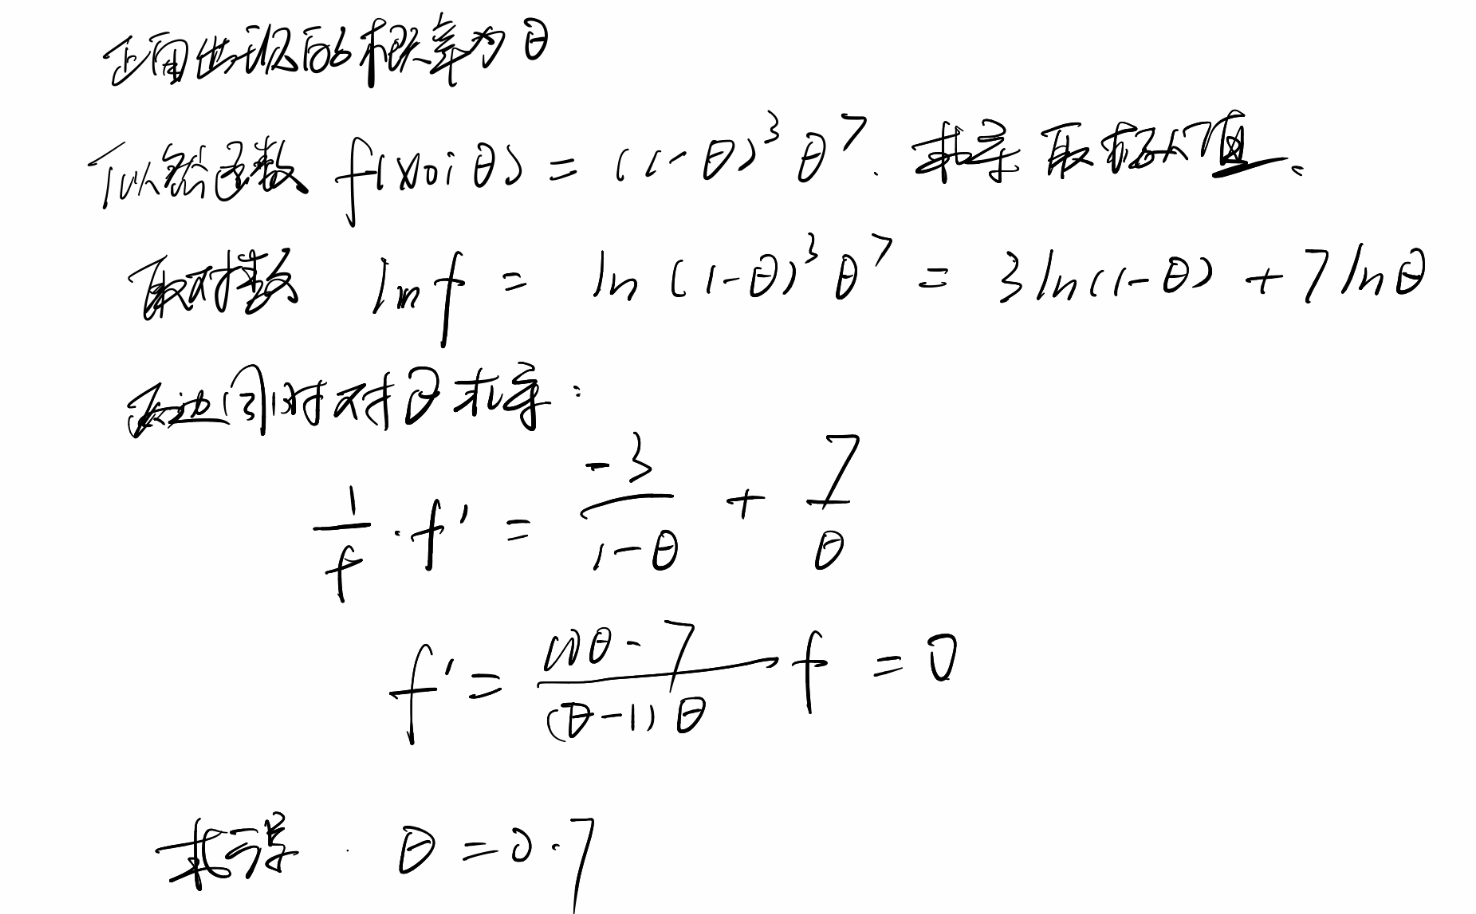 正面出现的概率为θ
似然函数 f(x₀; θ) = (1-θ)³ θ⁷. 求导取极大值.
取对数 ln f = ln (1-θ)³ θ⁷ = 3 ln(1-θ) + 7 ln θ
两边同时对θ求导:
1/f · f' = -3/(1-θ) + 7/θ
f' = (10θ-7)/((θ-1)θ) f = 0
求得 θ = 0.7